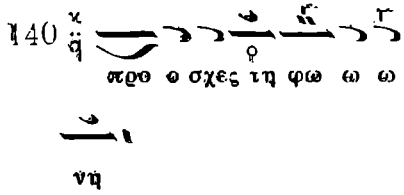 140
προ ο σχες τη φω ω ω
νη